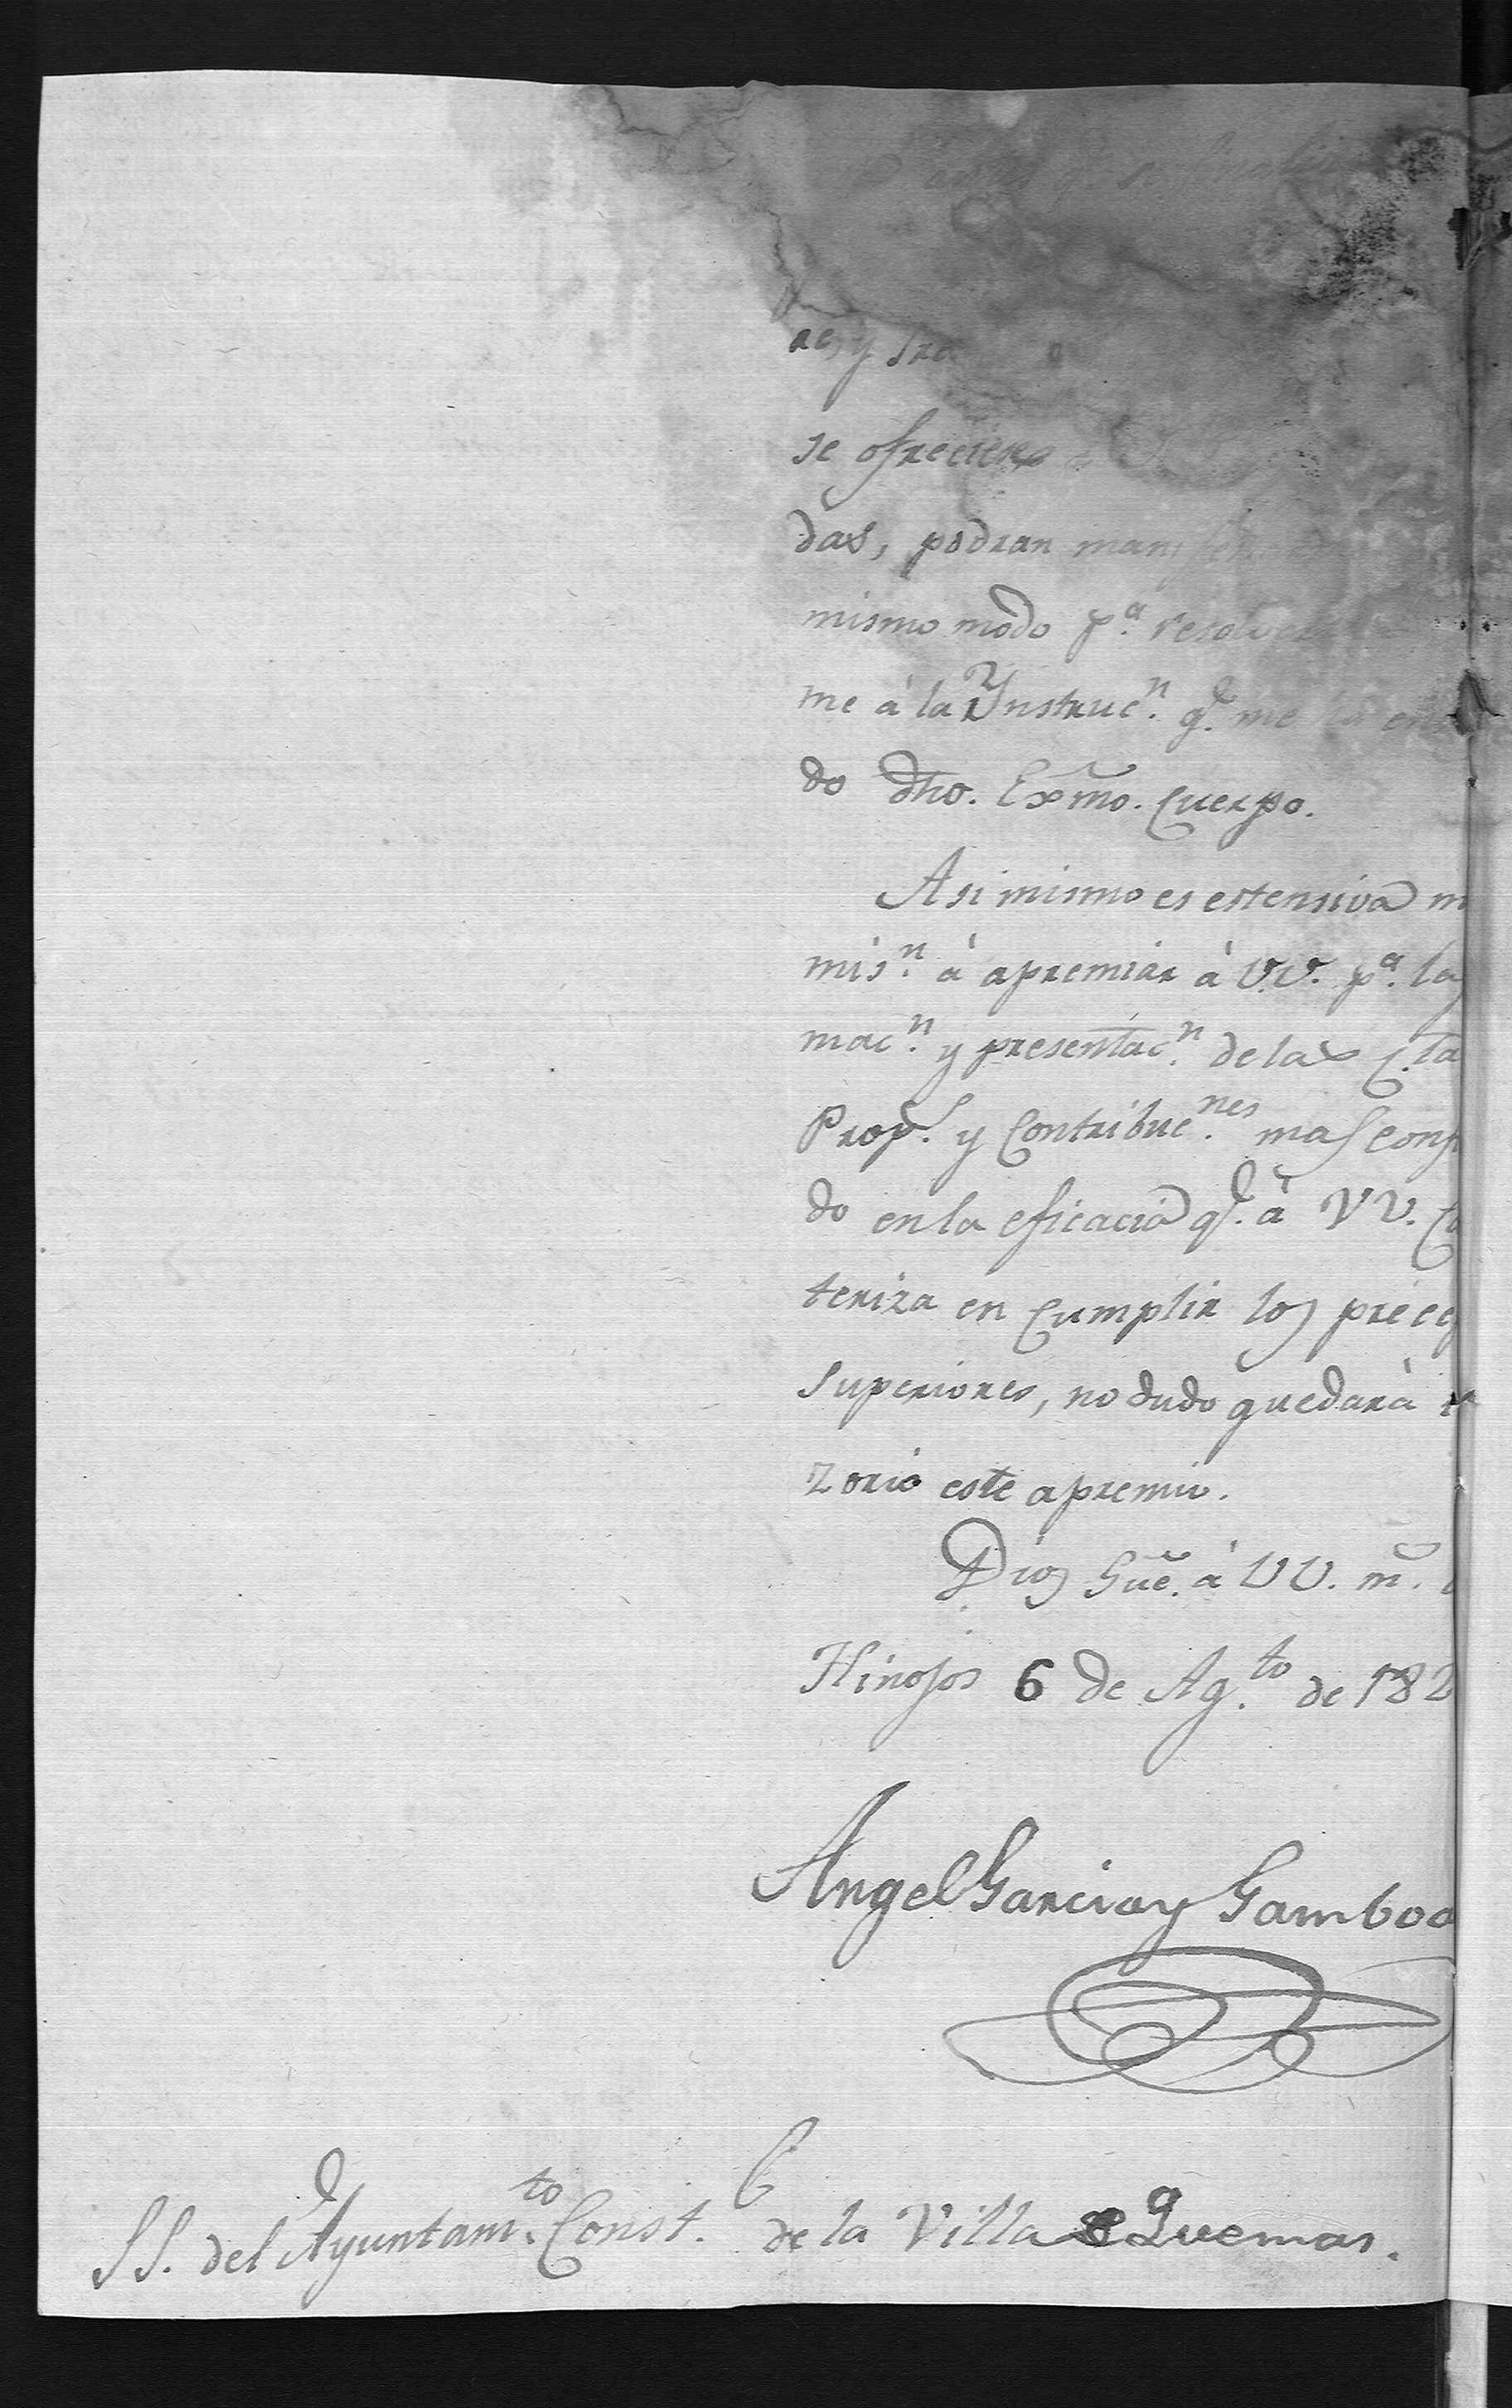 res y
se ofrecieren
das, podran
mismo modo p.ª resolver
me à la Ynstruc.n q.e me
do dho. Exmo. Cuerpo.
Asi mismo es estensiva m
mis.n à apremiar à V.V. p.ª la
mac.n y presentac.n de las C.ta
Prop.s y Contribuc.nes mas conf
do en la eficacia q.e à VV. Ca
teriza en Cumplir los precep
superiores, no dudo quedarà
zorio este apremio.
Dios Gue. à VV. m.
Hinojos 6 de Ag.to de 182
Angel Garcia y Gamboa
SS. del Ayuntam.to Const.l de la Villa de Quemas.